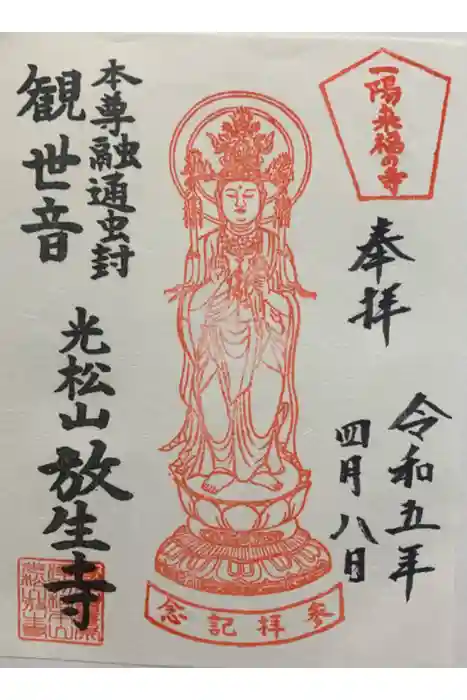 一陽来福の寺
奉拝
令和五年
四月八日
参拝記念
本尊融通虫封
観世音
光松山放生寺